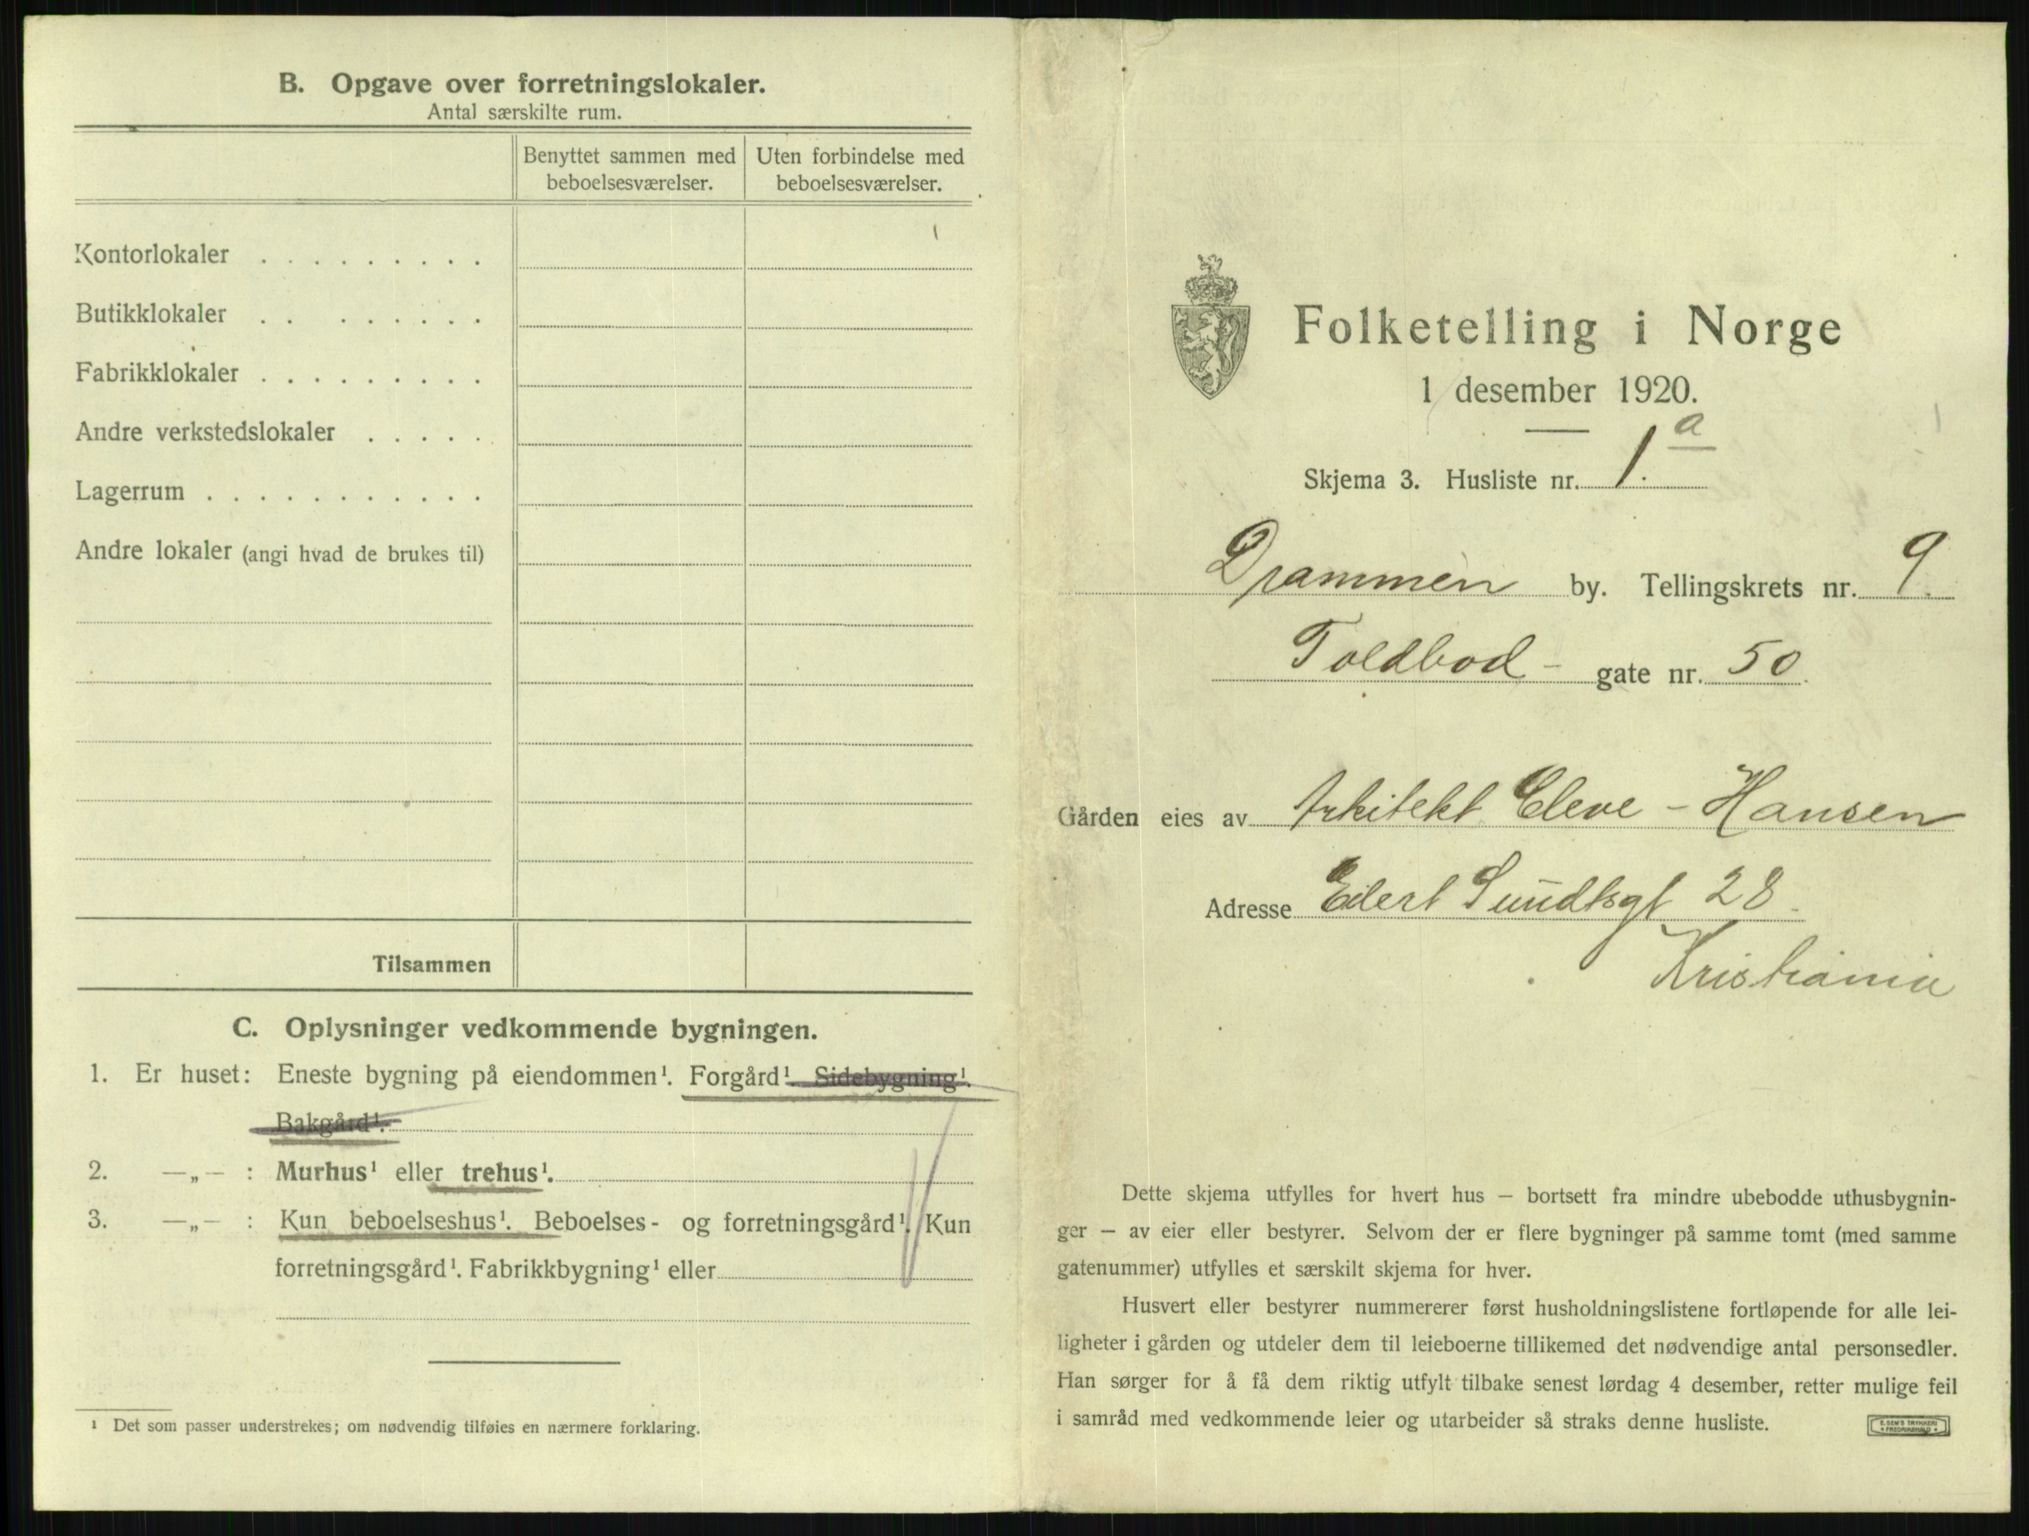 B. Opgave over forretningslokaler.
Antal særskilte rum.
Benyttet sammen med beboelsesværelser.
Uten forbindelse med beboelsesværelser.
Kontorlokaler . . . . . . . . .
Butikklokaler . . . . . . . .
Fabrikklokaler . . . . . . . . .
Andre verkstedslokaler . . . . .
Lagerrum . . . . . . . . . . .
Andre lokaler (angi hvad de brukes til)
Tilsammen
C. Oplysninger vedkommende bygningen.
1. Er huset: Eneste bygning på eiendommen¹. Forgård¹. Sidebygning¹.
Bakgård¹.
2. —„— : Murhus¹ eller trehus¹.
3. —„— : Kun beboelseshus¹. Beboelses- og forretningsgård¹. Kun
forretningsgård¹. Fabrikkbygning¹ eller
¹ Det som passer understrekes; om nødvendig tilføies en nærmere forklaring.
Folketelling i Norge
1 desember 1920.
Skjema 3. Husliste nr. 1.a
Drammen by. Tellingskrets nr. 9.
Toldbod- gate nr. 50.
Gården eies av Arkitekt Cleve-Hansen
Adresse Eilert Sundtsgt 28.
Kristiania
Dette skjema utfylles for hvert hus – bortsett fra mindre ubebodde uthusbygnin-
ger – av eier eller bestyrer. Selvom der er flere bygninger på samme tomt (med samme
gatenummer) utfylles et særskilt skjema for hver.
Husvert eller bestyrer nummererer først husholdningslistene fortløpende for alle lei-
ligheter i gården og utdeler dem til leieboerne tillikemed det nødvendige antal personsedler.
Han sørger for å få dem riktig utfylt tilbake senest lørdag 4 desember, retter mulige feil
i samråd med vedkommende leier og utarbeider så straks denne husliste.
E. SEM'S TRYKKERI
FREDRIKSHALD